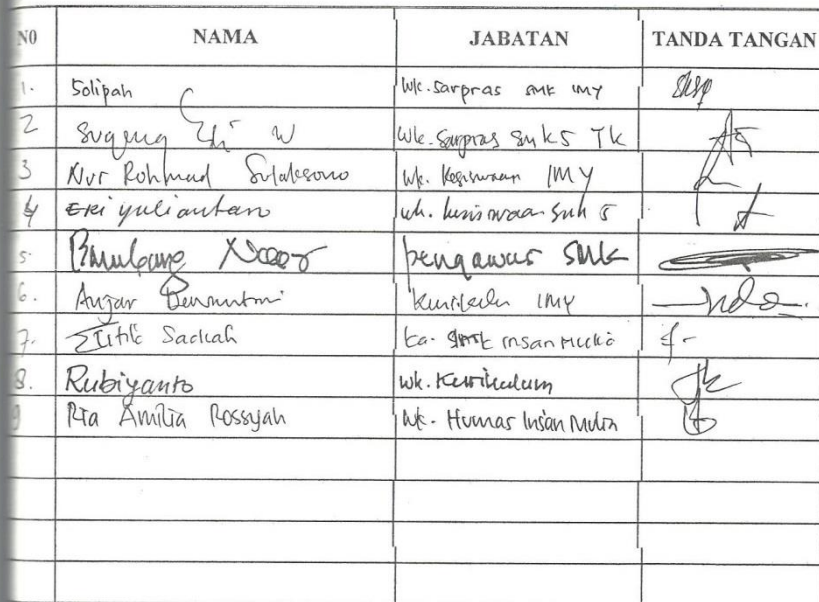 NO NAMA JABATAN TANDA TANGAN
1. Solipah Wk. Sarpras SMK IMY
2 Sugeng W Wk. Sarpras SMK 5 Tk
3 Nur Rohmad Sulaksono Wk. Kesiswaan IMY
4 Eki yuliantan wk. kesiswaan SMK 5
5. Bambang pengawas SMK
6. Anjar Kurikulum IMY
7. Titik Sadiah Ka. SMK Insan Mulia
8. Rubiyanto Wk. Kurikulum
9 Ria Amilia Rossyah Wk. Humas Insan Mulia